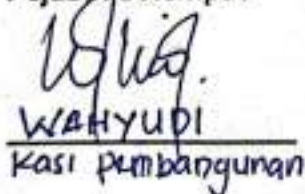 WAHYUDI
Kasi pembangunan